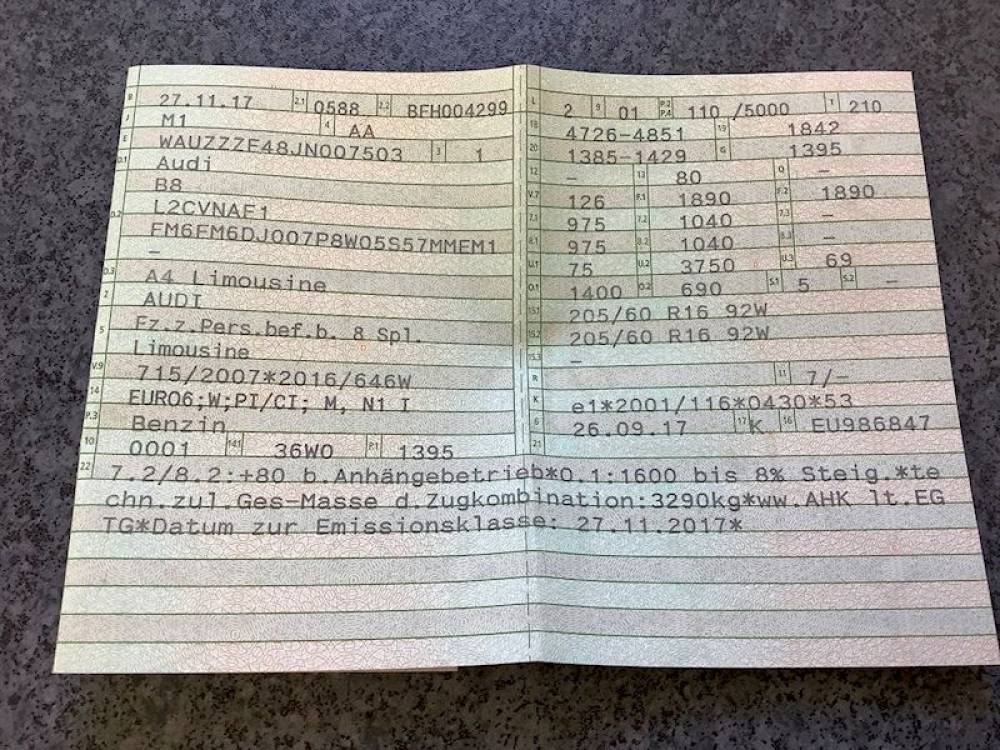 B 27.11.17 2.1 0588 2.2 BFH004299 L 2 9 01 P.2 P.4 110 /5000 T 210
J M1 4 AA 18 4726-4851 19 1842
E WAUZZZF48JN007503 3 1 20 1385-1429 G 1395
D.1 Audi 12 – 13 80 Q –
B8 V.7 126 F.1 1890 F.2 1890
D.2 L2CVNAF1 7.1 975 7.2 1040 7.3 –
FM6FM6DJ007P8W05S57MMEM1 8.1 975 8.2 1040 8.3 –
– U.1 75 U.2 3750 U.3 69
D.3 A4 Limousine O.1 1400 O.2 690 S.1 5 S.2 –
2 AUDI 15.1 205/60 R16 92W
5 Fz.z.Pers.bef.b. 8 Spl. 15.2 205/60 R16 92W
Limousine 15.3 –
V.9 715/2007*2016/646W R 11 7/–
14 EURO6;W;PI/CI; M, N1 I K e1*2001/116*0430*53
P.3 Benzin 6 26.09.17 17 K 16 EU986847
10 0001 14.1 36W0 P.1 1395 21
22 7.2/8.2:+80 b.Anhängebetrieb*O.1:1600 bis 8% Steig.*te
chn.zul.Ges-Masse d.Zugkombination:3290kg*ww.AHK lt.EG
TG*Datum zur Emissionsklasse: 27.11.2017*